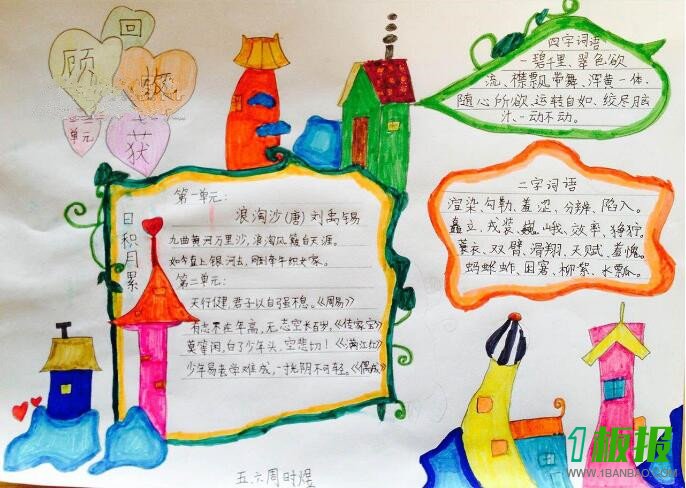 回
顾
收
获
一二
单元
四字词语
一碧千里、翠色欲
流、襟飘带舞、浑黄一体、
随心所欲、运转自如、绞尽脑
汁、一动不动。
二字词语
渲染、勾勒、羞涩、分辨、陷入。
矗立、戎装、巍峨、效率、狰狞。
蓑衣、双臂、滑翔、天赋、羞愧。
蚂蚱、田窝、柳絮、水瓢。
日积月累
第一单元：
浪淘沙(唐)刘禹锡
九曲黄河万里沙，浪淘风簸自天涯。
如今直上银河去，同到牵牛织女家。
第二单元：
天行健，君子以自强不息。《周易》
有志不在年高，无志空长百岁。《传家宝》
莫等闲，白了少年头，空悲切！《满江红》
少年易老学难成，一寸光阴不可轻。《偶成》
五.六周时煜
1板报
WWW.1BANBAO.COM